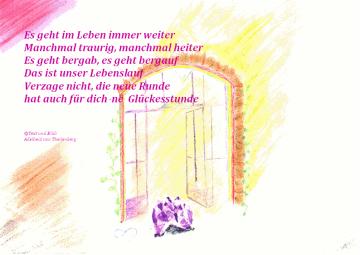 Es geht im Leben immer weiter
Manchmal traurig, manchmal heiter
Es geht bergab, es geht bergauf
Das ist unser Lebenslauf
Verzage nicht, die neue Runde
hat auch für dich ne Glückesstunde
©Text und Bild